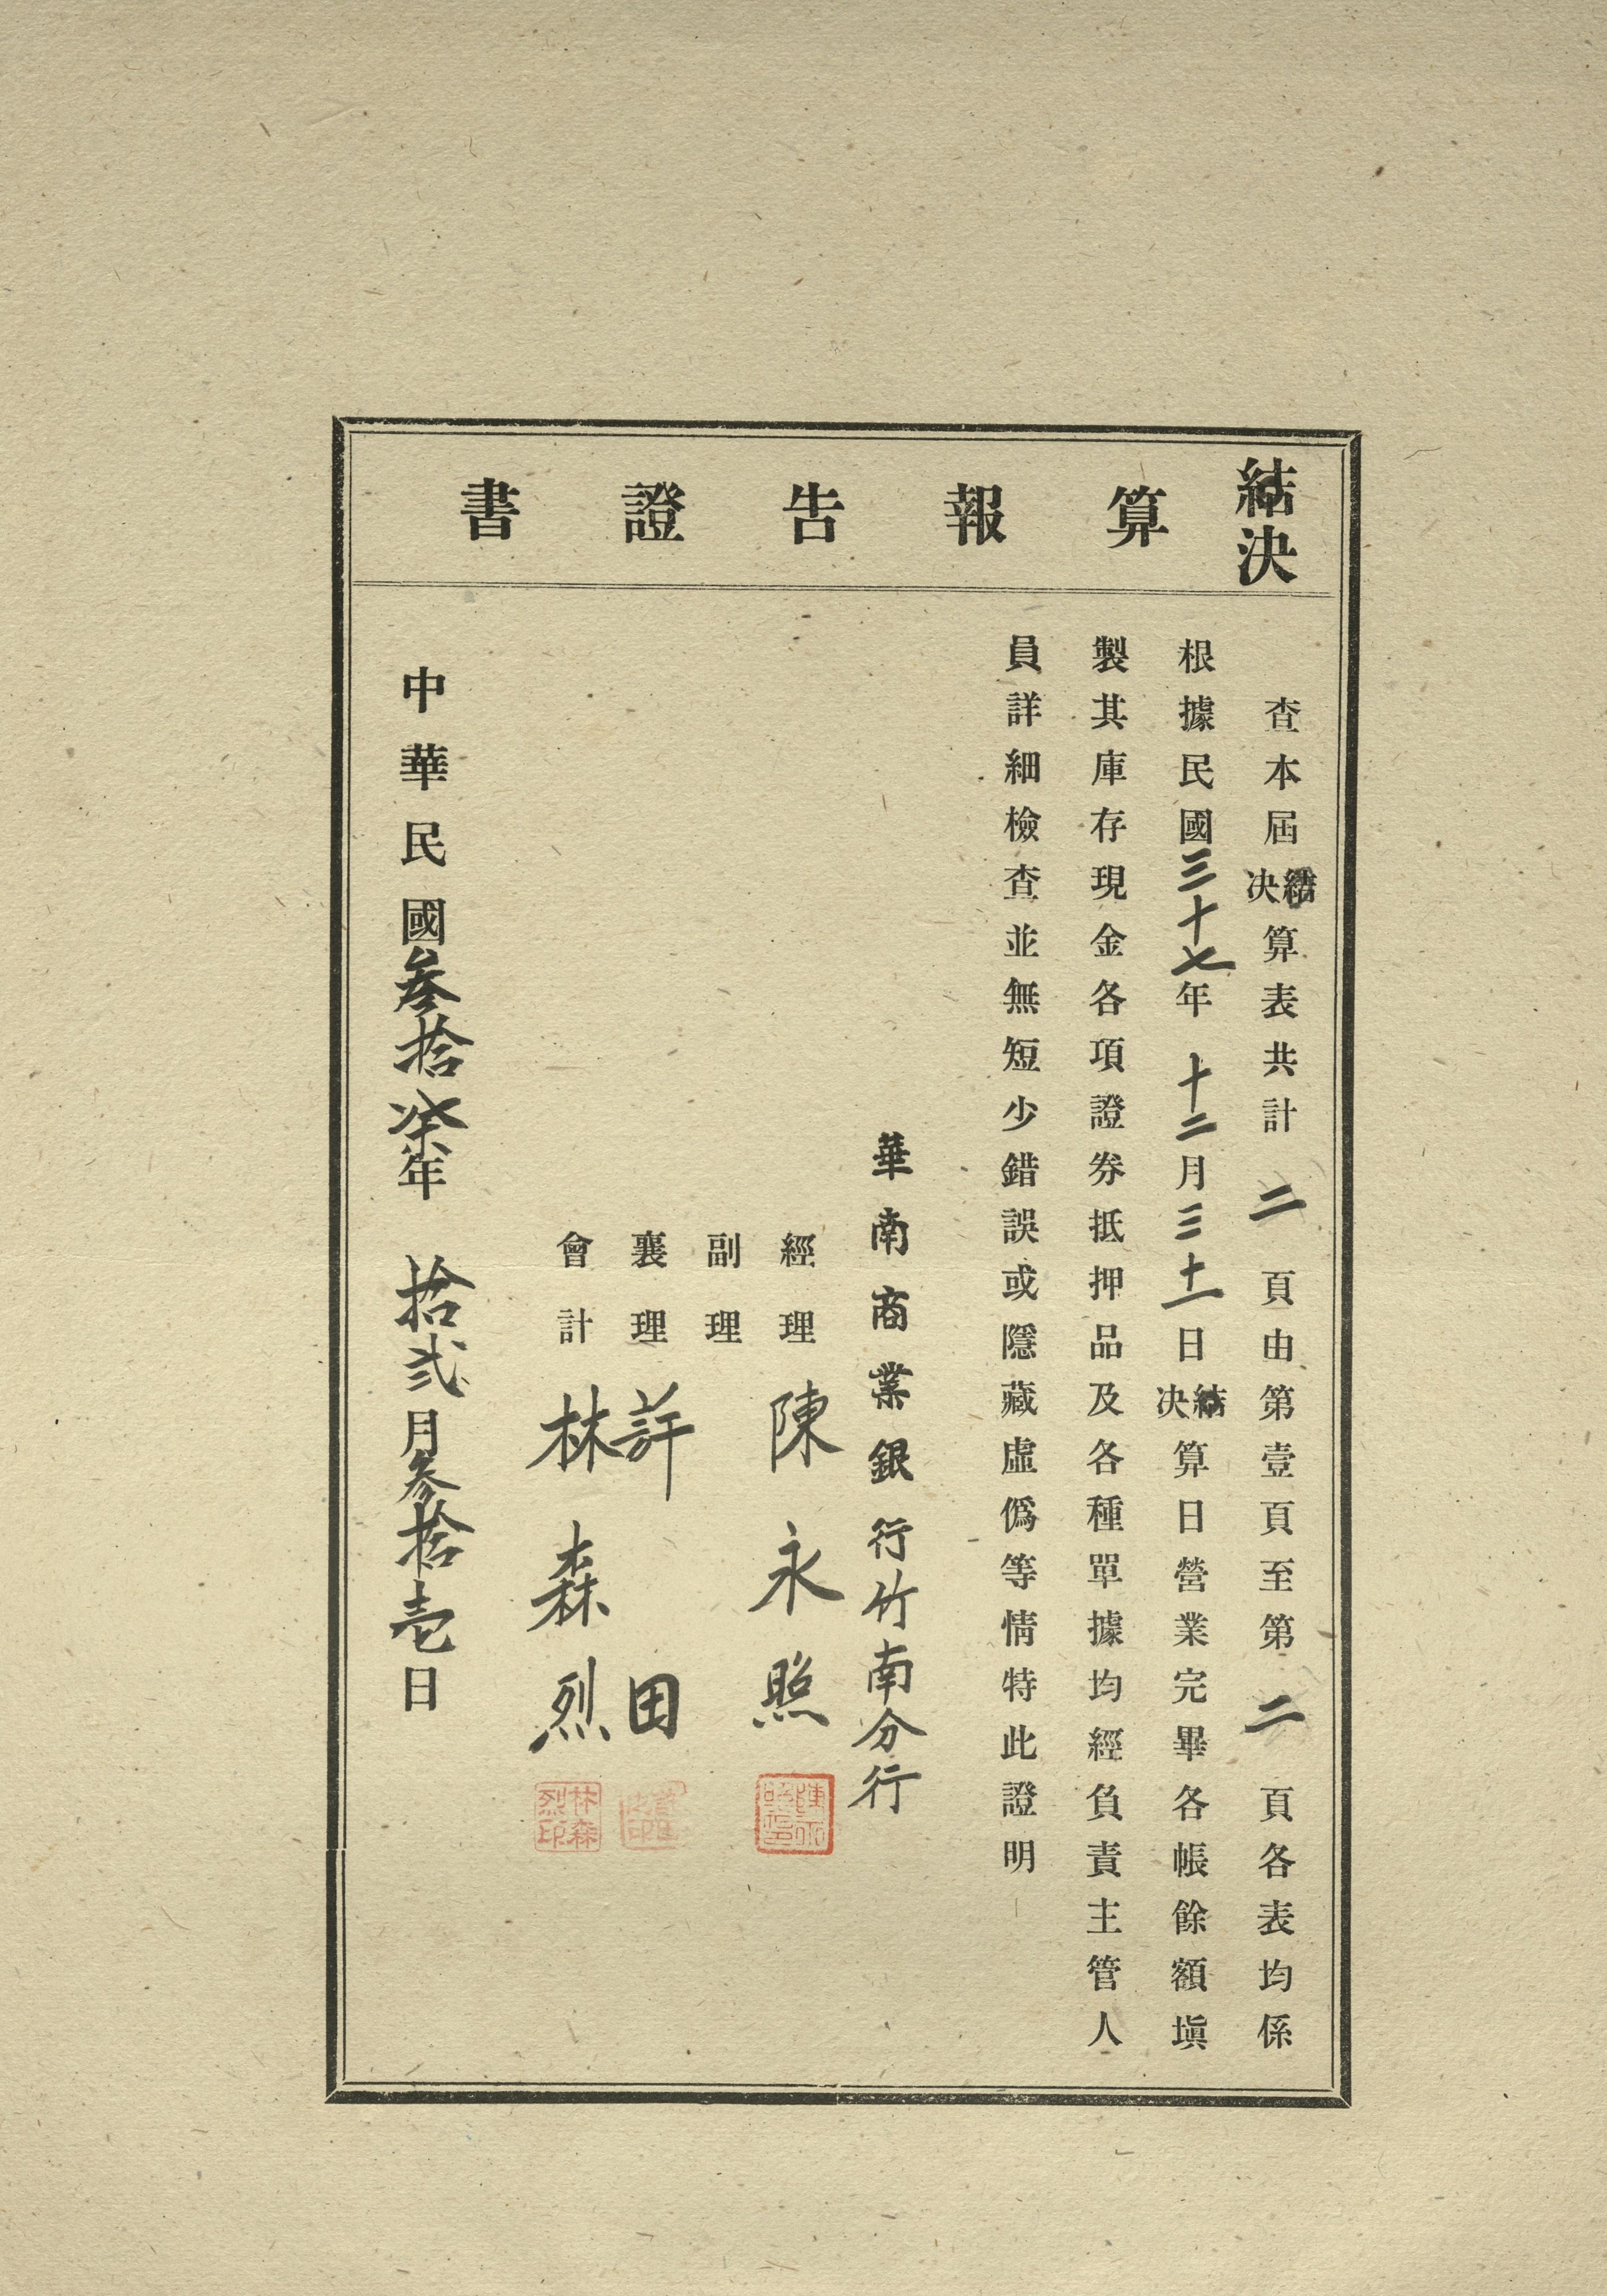 結決算報告證書
查本屆結決算表共計二頁由第壹頁至第二頁各表均係
根據民國三十七年十二月三十一日結決算日營業完畢各帳餘額塡
製其庫存現金各項證券抵押品及各種單據均經負責主管人
員詳細檢查並無短少錯誤或隱藏虛僞等情特此證明
華南商業銀行竹南分行
經理 陳永照
副理
襄理 許田
會計 林森烈
林森烈印
中華民國叁拾柒年拾弍月叁拾壱日